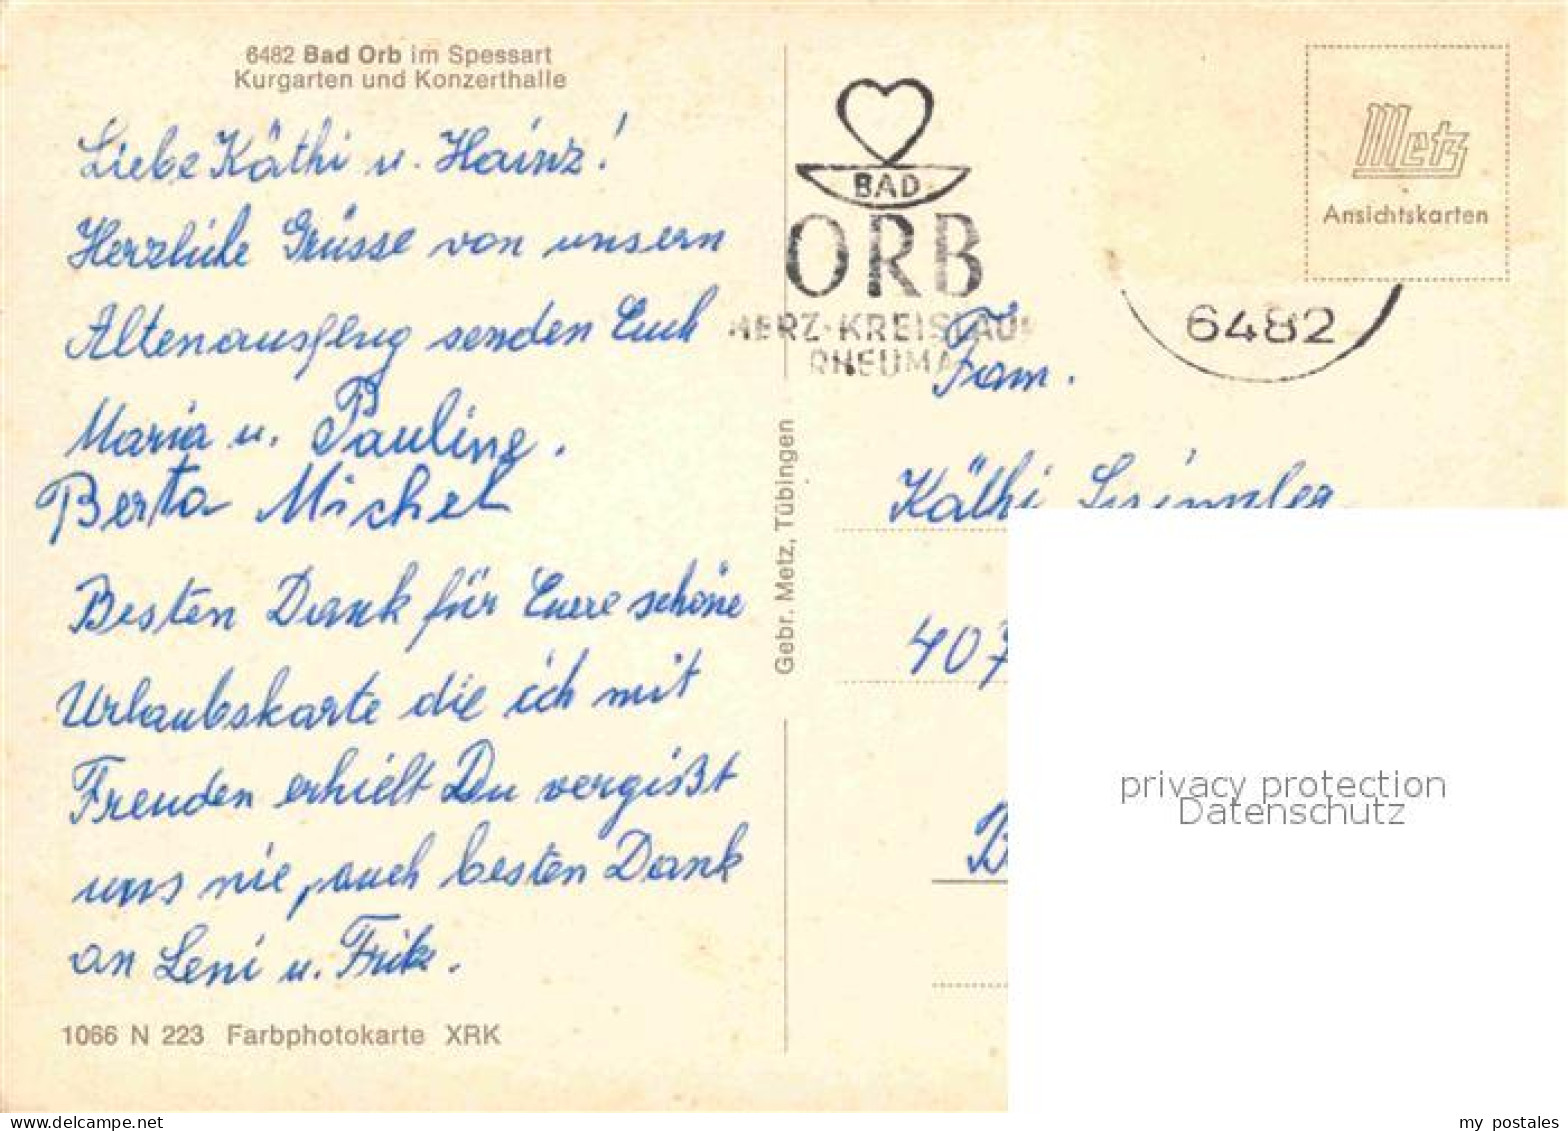 6482 Bad Orb im Spessart
Kurgarten und Konzerthalle
Liebe Käthi u. Hainz!
Herzliche Grüsse von unsern
Altenausflug senden Euch
Maria u. Pauline.
Berta Michel
Besten Dank für Euere schöne
Urlaubskarte die ich mit
Freuden erhielt Du vergißt
uns nie, auch besten Dank
an Leni u. Fritz.
1066 N 223 Farbphotokarte XRK
Gebr. Metz, Tübingen
BAD
ORB
HERZ-KREISLAUF
RHEUMA
6482
Metz
Ansichtskarten
Fam.
Käthi
407
B
privacy protection
Datenschutz
my postales